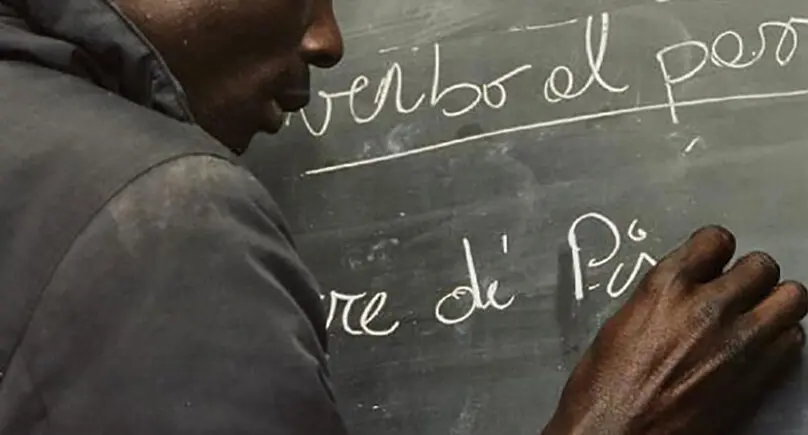 verbo al pas
re di Pa